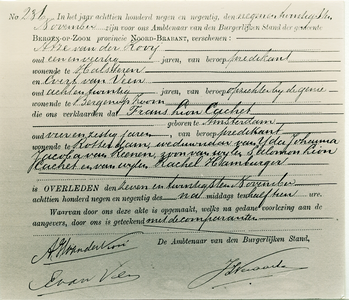 No. 281 In het jaar achttien honderd negen en negentig, den negen en twintigsten
November zijn voor ons Ambtenaar van den Burgerlijken Stand der gemeente
BERGEN-OP-ZOOM provincie NOORD-BRABANT, verschenen:
Atze van der Kooy
oud een en veertig jaren, van beroep predikant
wonende te Halsteren
en Evert van Veen
oud acht en twintig jaren, van beroep opzichter bij de genie
wonende te Bergen op Zoom
die ons verklaarden dat Frans Lion Cachet
geboren te Amsterdam
oud vier en zestig jaren, van beroep predikant
wonende te Rotterdam, weduwnaar van Ida Johanna
Jacoba van Leenen, zoon van wijlen Salomon Lion
Cachet en van wijlen Rachel Hamburger
is OVERLEDEN den zeven en twintigsten November
achttien honderd negen en negentig, des na middags ten half tien ure.
Waarvan door ons deze akte is opgemaakt, welke na gedane voorlezing aan de
aangevers, door ons is geteekend met de comparanten
De Ambtenaar van den Burgerlijken Stand,
A. v. d. Kooy
E van Veen